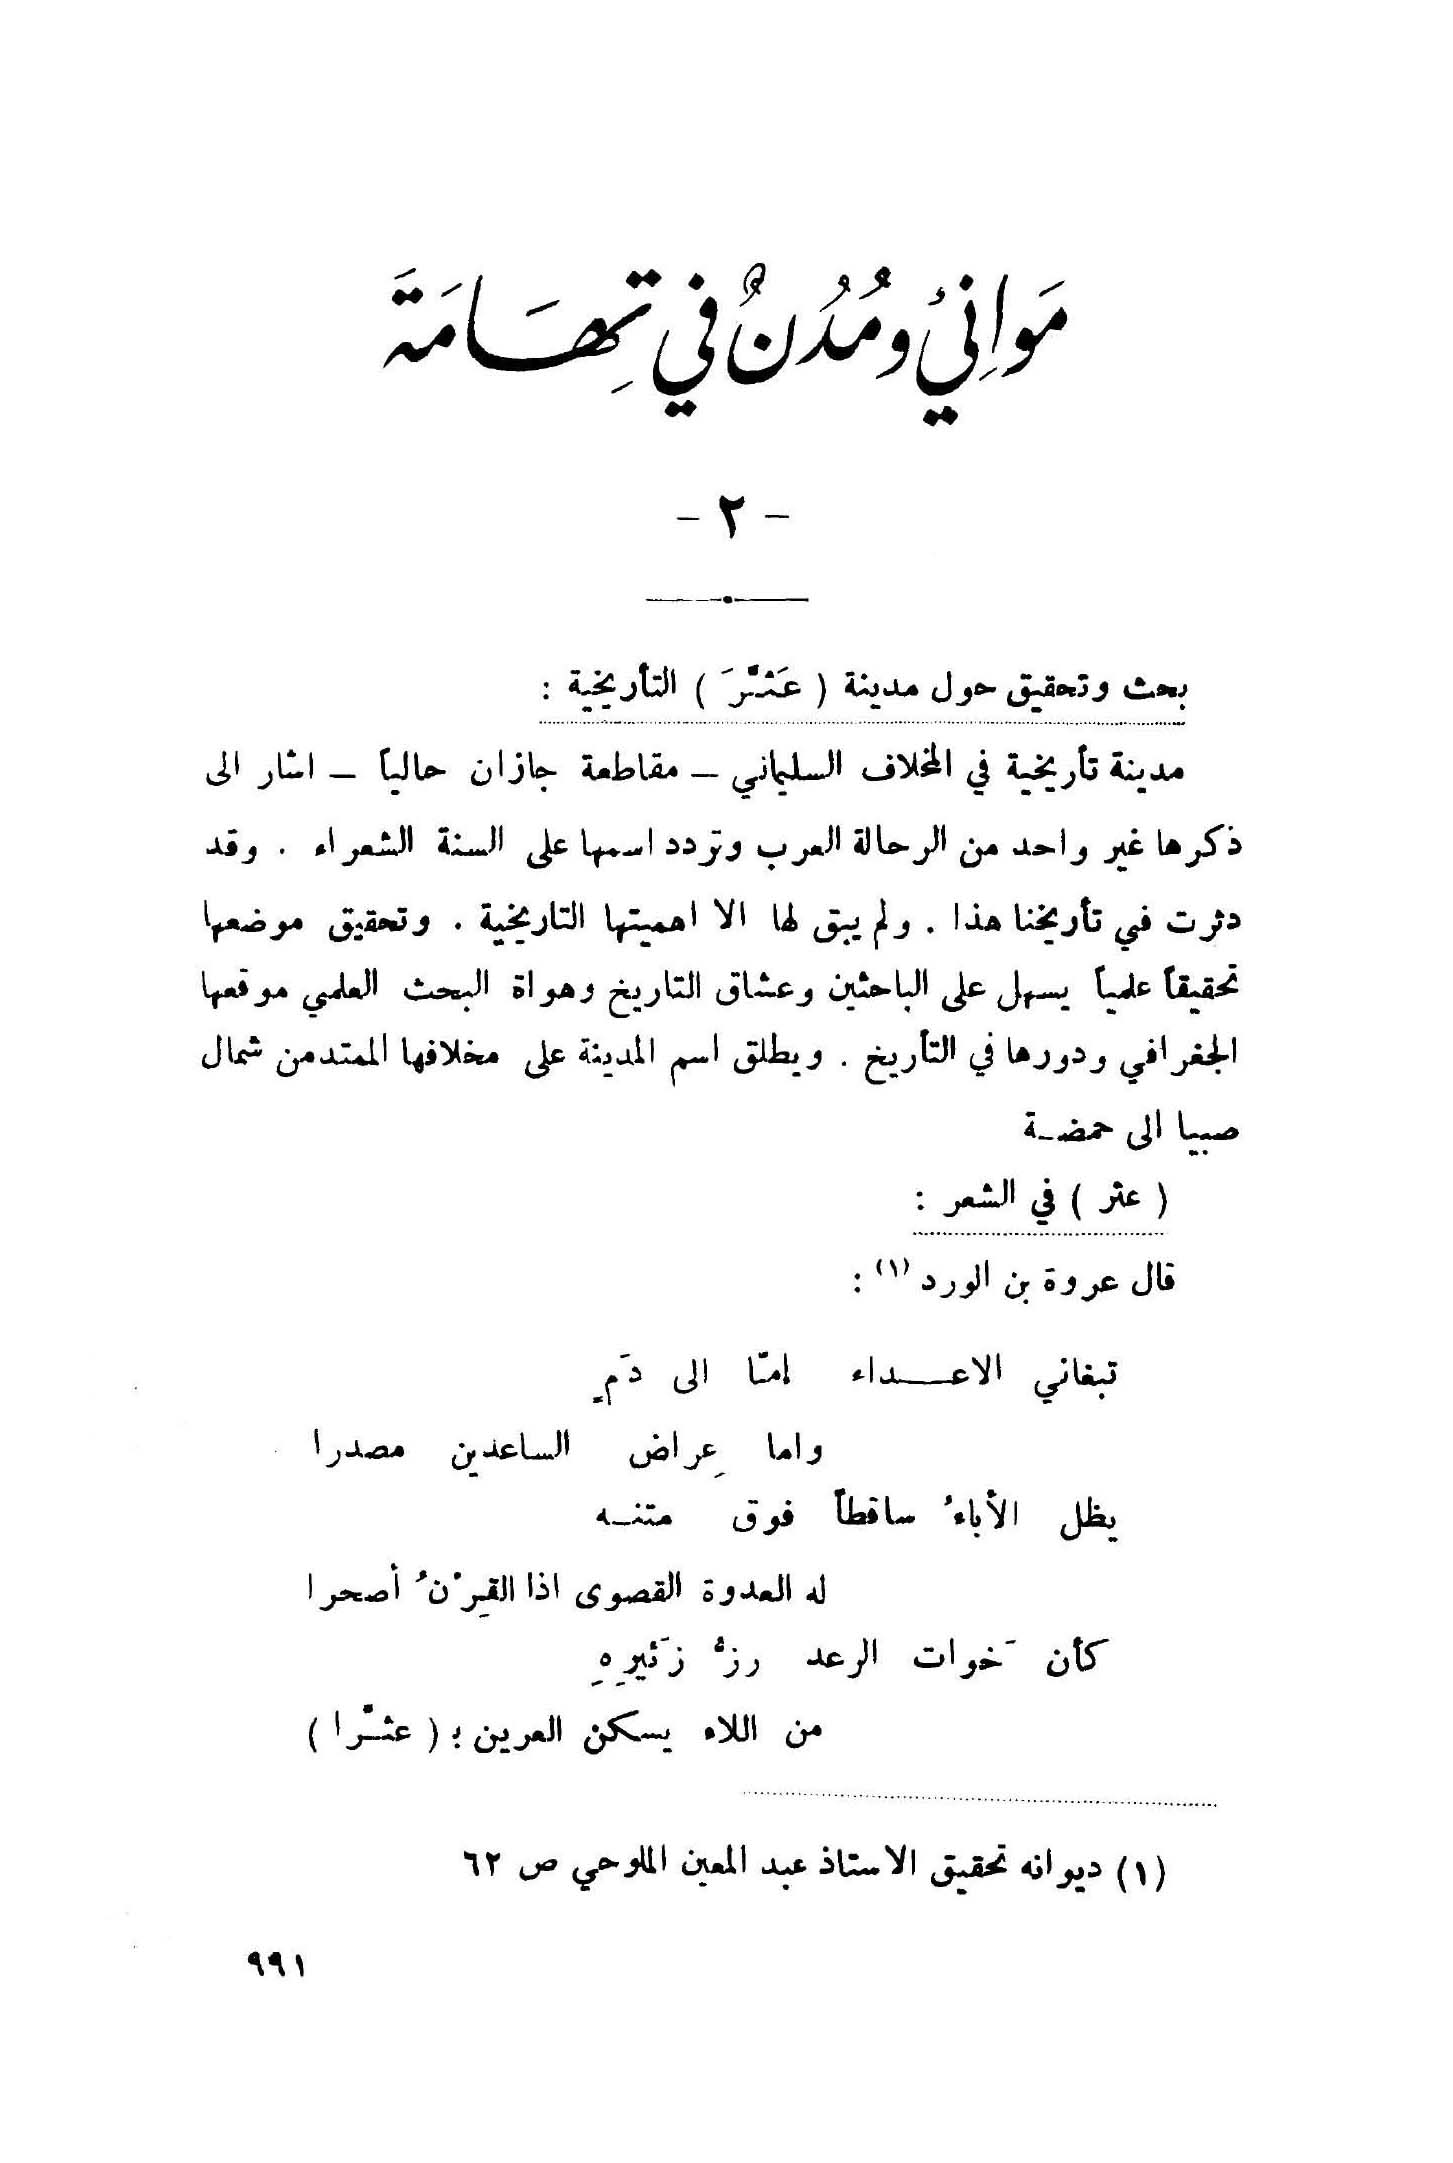 مَوَانِئُ ومُدُنٌ في تِهَامَة
- ٢ -
بحث وتحقيق حول مدينة ( عَثَّرَ ) التأريخية :
مدينة تأريخية في المخلاف السليماني – مقاطعة جازان حالياً – اشار الى
ذكرها غير واحد من الرحالة العرب وتردد اسمها على السنة الشعراء . وقد
دثرت في تأريخنا هذا . ولم يبق لها الا اهميتها التاريخية . وتحقيق موضعها
تحقيقاً علمياً يسهل على الباحثين وعشاق التاريخ وهواة البحث العلمي موقعها
الجغرافي ودورها في التأريخ . ويطلق اسم المدينة على مخلافها الممتد من شمال
صبيا الى حمضـة
( عثر ) في الشعر :
قال عروة بن الورد (١) :
تبغاني الاعـــداء إمّا الى دَمٍ
واما عِراض الساعدين مصدرا
يظل الأباءُ ساقطاً فوق متنـه
له العدوة القصوى اذا القِرْنُ أصحرا
كأن خَوات الرعد رزُّ زَئيرِهِ
من اللاء يسكن العرين بـ ( عثَّرا )
(١) ديوانه تحقيق الاستاذ عبد المعين الملوحي ص ٦٢
٩٩١